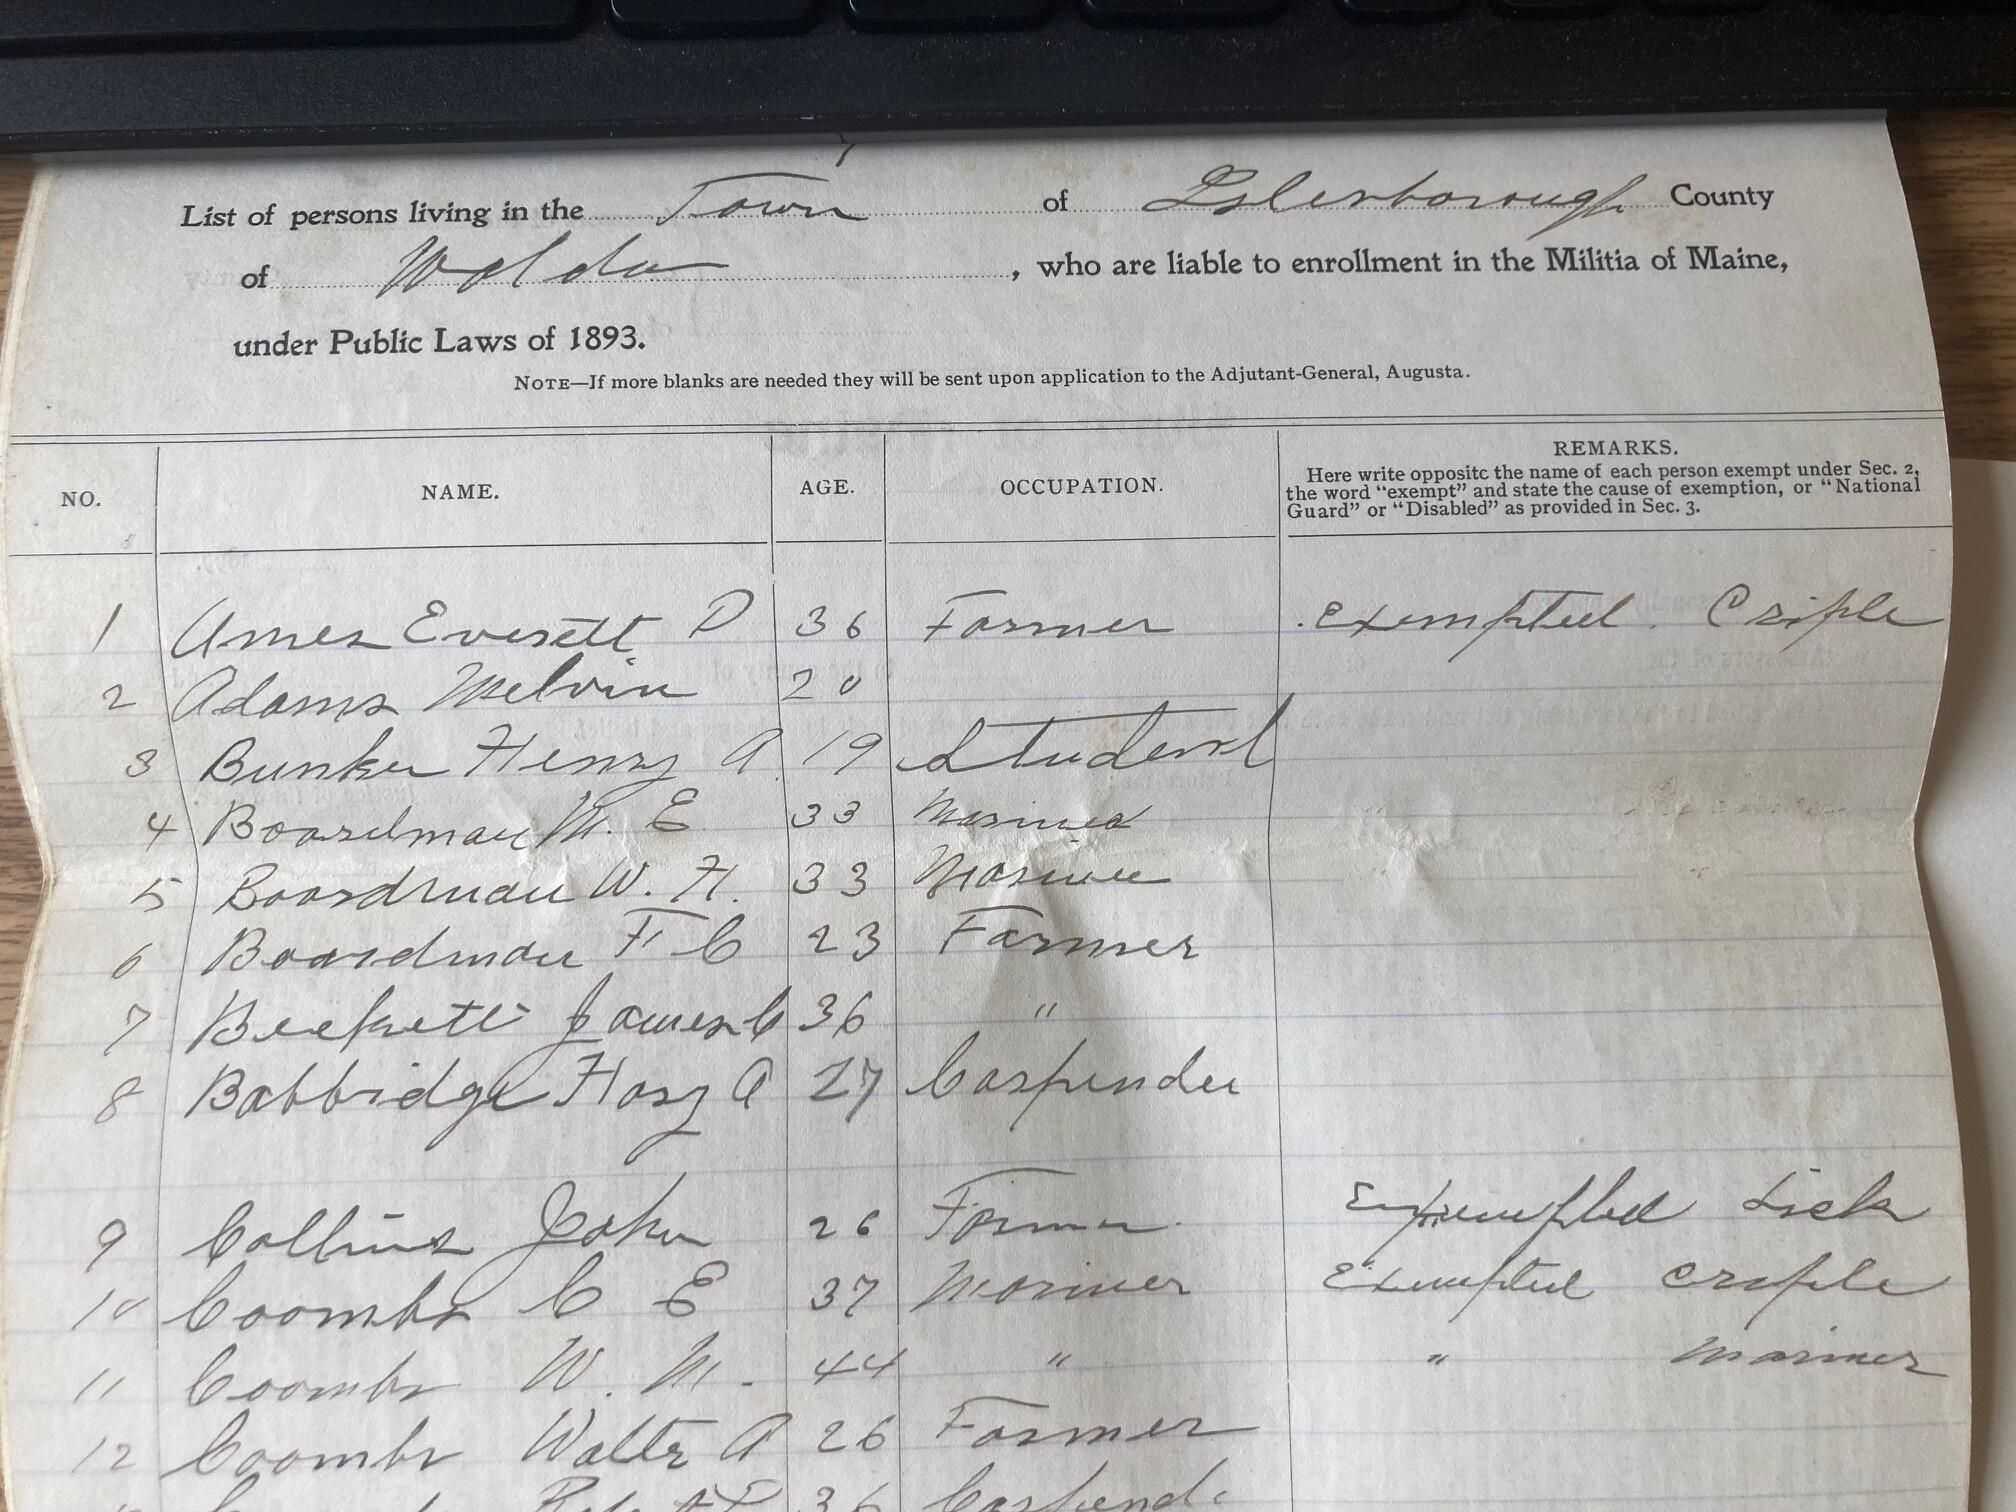 List of persons living in the Town of Islesborough County
of Waldo, who are liable to enrollment in the Militia of Maine,
under Public Laws of 1893.
NOTE—If more blanks are needed they will be sent upon application to the Adjutant-General, Augusta.
NO. NAME. AGE. OCCUPATION. REMARKS.
Here write opposite the name of each person exempt under Sec. 2,
the word "exempt" and state the cause of exemption, or "National
Guard" or "Disabled" as provided in Sec. 3.
1 Ames Everett D 36 Farmer Exempted Criple
2 Adams Melvin 20
3 Bunker Henry A 19 Student
4 Boardman M. E 33 Mariner
5 Boardman W. H. 33 Mariner
6 Boardman F C 23 Farmer
7 Beckett James C 36 "
8 Babbidge Hary A 27 Carpender
9 Collins John 26 Farmer Exempted Sick
10 Coombs C E 37 Mariner Exempted Criple
11 Coombs W. M. 44 " " Mariner
12 Coombs Walter A 26 Farmer
36